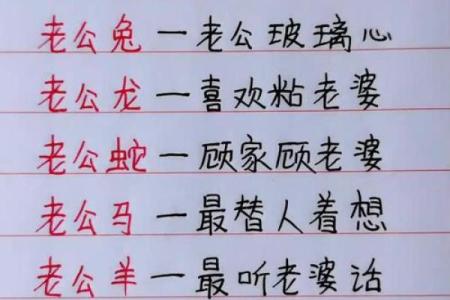 老公兔一老公玻璃心
老公龙一喜欢粘老婆
老公蛇一顾家顾老婆
老公马一最替人着想
老公羊一最听老婆话